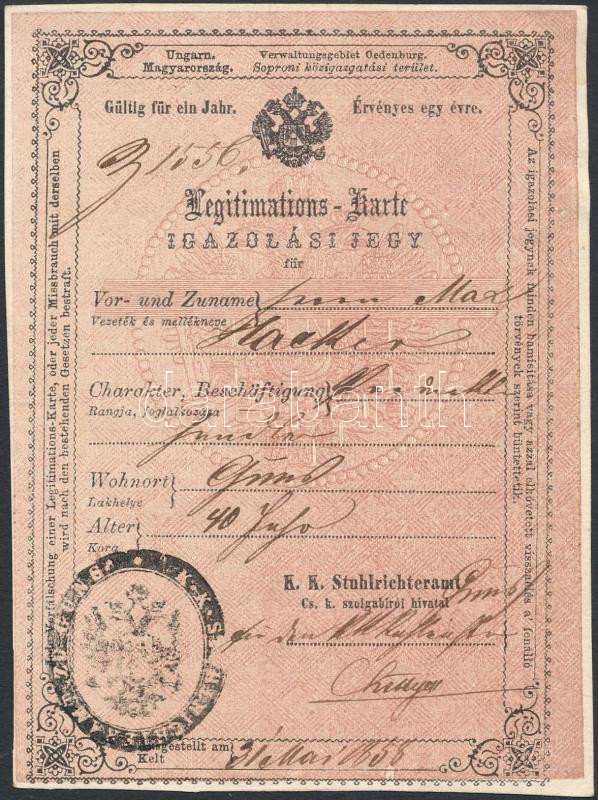 Ungarn.
Magyarország.
Verwaltungsgebiet Oedenburg.
Soproni közigazgatási terület.
Gültig für ein Jahr.
Érvényes egy évre.
1556.
Legitimations-Karte
IGAZOLÁSI JEGY
für
Vor- und Zuname Max
Vezeték és mellékneve Hacker
Charakter, Beschäftigung
Rangja, foglalkozása
Wohnort Güns
Lakhelye
Alter 40 Jahr
Kora
K. K. Stuhlrichteramt Güns
Cs. k. szolgabírói hivatal
für den
Ausgestellt am
Kelt 31 Mai 1858
Verfälschung einer Legitimations-Karte, oder jeder Missbrauch mit derselben
wird nach den bestehenden Gesetzen bestraft.
Az igazolási jegynek minden hamisítása vagy azzal elkövetett visszaélés a' fenálló
törvények szerint büntettetik.
darabanth